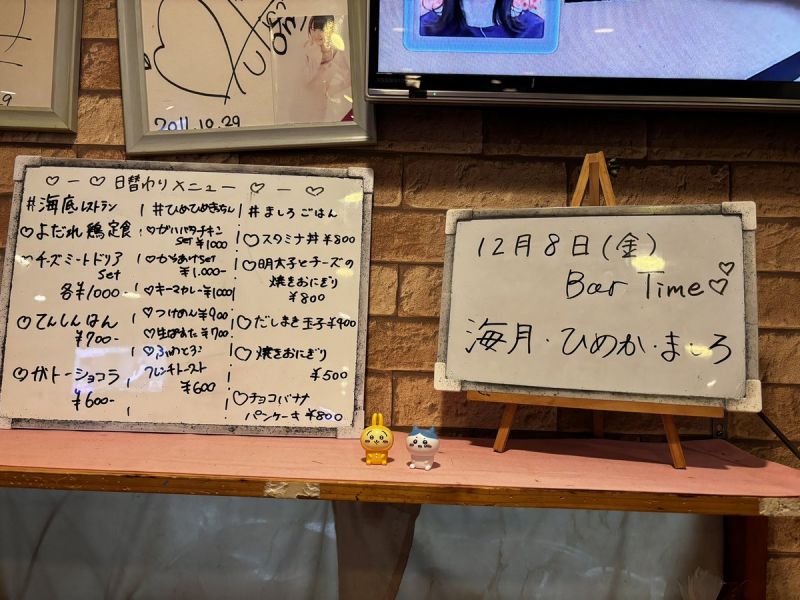 2011.10.29
♡ー♡ 日替わりメニュー ♡ー♡
#海底レストラン
♡よだれ鶏定食
♡チーズミートドリア
set
各¥1000
♡てんしんはん
¥700-
♡ガトーショコラ
¥600-
#ひめひめきっちん
♡ガリバタチキン
set ¥1000
♡からあげset
¥1,000-
♡キーマカレー¥1000
♡つけめん¥900
♡生ぱすた¥700
♡ふわとろ
フレンチトースト
¥600
#ましろごはん
♡スタミナ丼¥800
♡明太子とチーズの
焼きおにぎり
¥800
♡だしまき玉子¥900
♡焼きおにぎり
¥500
♡チョコバナナ
パンケーキ¥800
12月8日(金)
Bar Time♡♡
海月・ひめか・ましろ